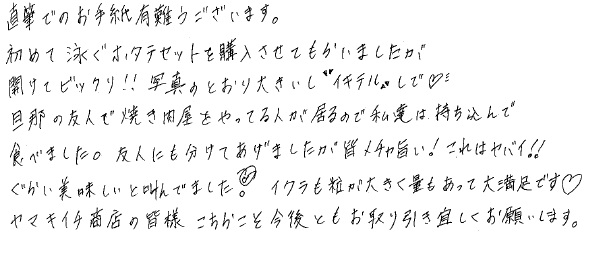 直筆でのお手紙有難うございます。
初めて泳ぐホタテセットを購入させてもらいましたが
開けてビックリ!! 写真のとおり大きいし"イキテル"しで♡
旦那の友人で焼き肉屋をやってる人が居るので私達は持ち込んで
食べました。友人にも分けてあげましたが皆メチャ旨い!これはヤバイ!!
ぐらい美味しいと叫んでました! イクラも粒が大きく量もあって大満足です♡
ヤマキイチ商店の皆様 こちらこそ今後ともお取り引き宜しくお願いします。